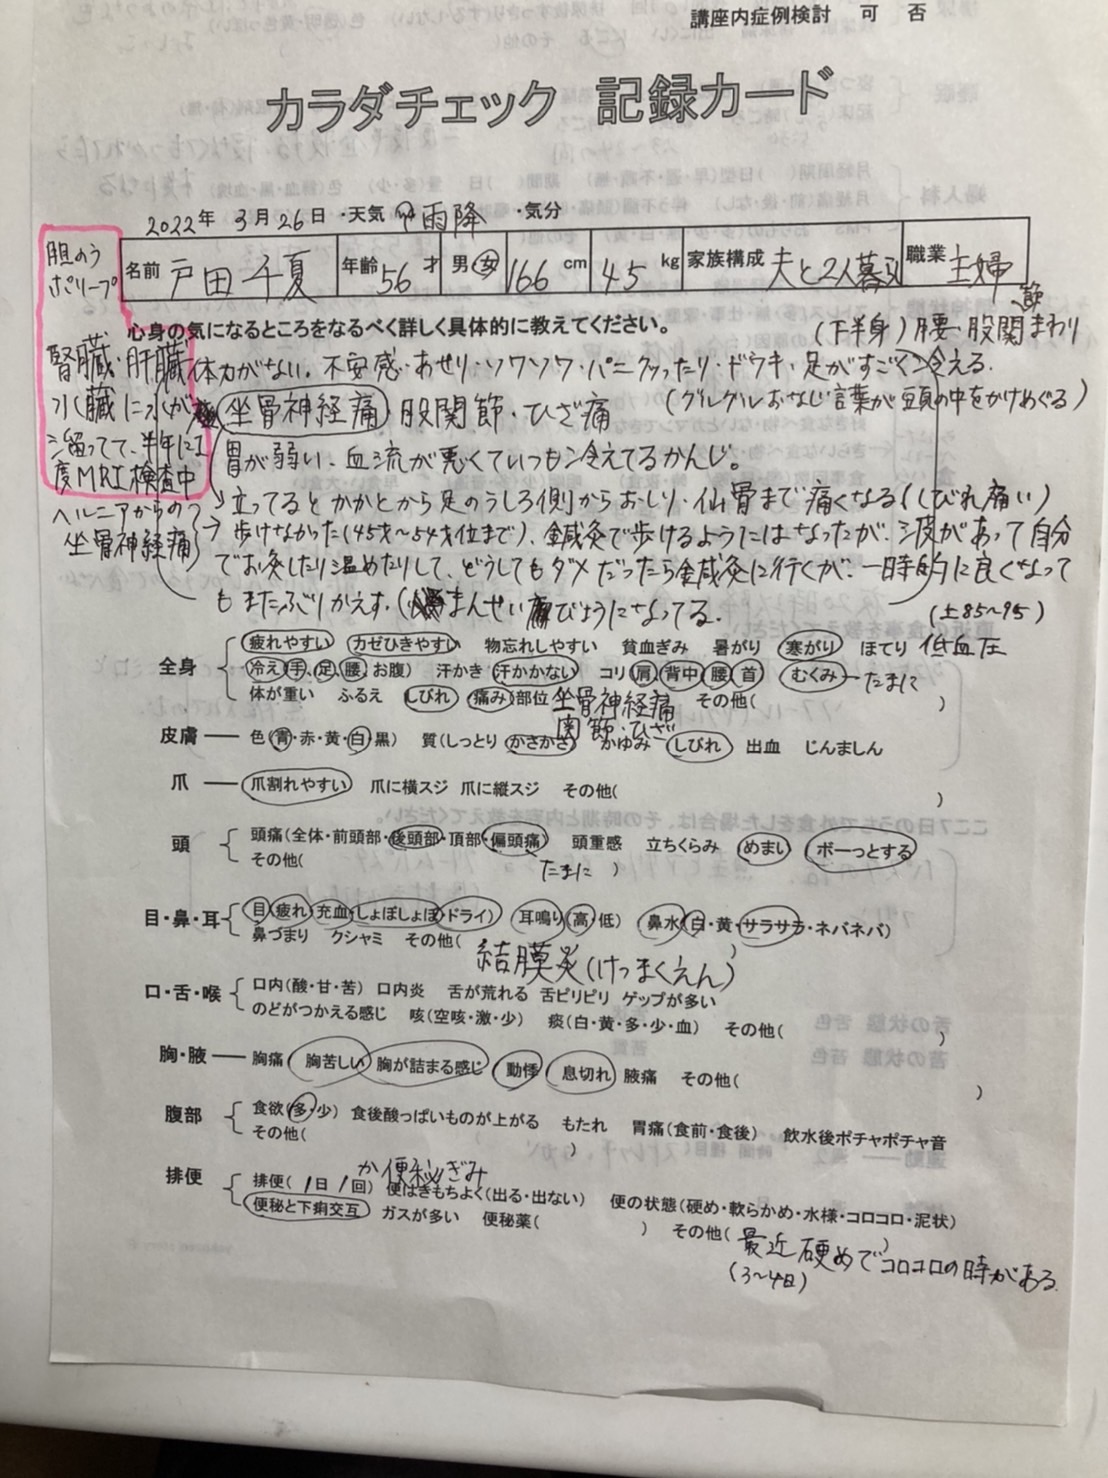 講座内症例検討 可 否
カラダチェック 記録カード
2022年 3月26日・天気 雨降 ・気分
名前 戸田千夏 年齢 56才 男・女 166cm 45kg 家族構成 夫と2人暮し 職業 主婦
胆のう
ポリープ
腎臓・肝臓
すい臓に水が
溜ってて、半年に1
度MRI検査中
ヘルニアからの
坐骨神経痛
心身の気になるところをなるべく詳しく具体的に教えてください。
(下半身)腰・股関節まわり
体力がない。不安感・あせり・ソワソワ・パニクったり・ドウキ・足がすごく冷える。
坐骨神経痛 股関節・ひざ痛 (グルグルおなじ言葉が頭の中をかけめぐる)
胃が弱い、血流が悪くていつも冷えてるかんじ。
立ってるとかかとから足のうしろ側からおしり・仙骨まで痛くなる(しびれ痛い)
歩けなかった(45才〜54才位まで)、鍼灸で歩けるようにはなったが、波があって自分
でお灸したり温めたりして、どうしてもダメだったら鍼灸に行くが、一時的に良くなって
もまたぶりかえす。(まんせい びょうになってる。
(上85〜95)
全身
疲れやすい カゼひきやすい 物忘れしやすい 貧血ぎみ 暑がり 寒がり ほてり 低血圧
冷え(手、足、腰、お腹) 汗かき 汗かかない コリ(肩・背中・腰・首) むくみ たまに
体が重い ふるえ しびれ 痛み(部位 坐骨神経痛 その他( )
関節・ひざ
皮膚 色(青・赤・黄・白・黒) 質(しっとり・かさかさ) かゆみ しびれ 出血 じんましん
爪 爪割れやすい 爪に横スジ 爪に縦スジ その他( )
頭
頭痛(全体・前頭部・後頭部・頂部・偏頭痛) 頭重感 立ちくらみ めまい ボーっとする
その他( たまに )
目・鼻・耳
目(疲れ・充血・しょぼしょぼ・ドライ) 耳鳴り(高・低) 鼻水(白・黄・サラサラ・ネバネバ)
鼻づまり クシャミ その他( )
結膜炎(けつまくえん)
口・舌・喉
口内(酸・甘・苦) 口内炎 舌が荒れる 舌ピリピリ ゲップが多い
のどがつかえる感じ 咳(空咳・激・少) 痰(白・黄・多・少・血) その他( )
胸・腋 胸痛 胸苦しい 胸が詰まる感じ 動悸 息切れ 腋痛 その他( )
腹部
食欲(多・少) 食後酸っぱいものが上がる もたれ 胃痛(食前・食後) 飲水後ポチャポチャ音
その他( )
か便秘ぎみ
排便
排便(1日1回) 便はきもちよく(出る・出ない) 便の状態(硬め・軟らかめ・水様・コロコロ・泥状)
便秘と下痢交互 ガスが多い 便秘薬( ) その他( )
最近硬めでコロコロの時がある。
(3〜4日)